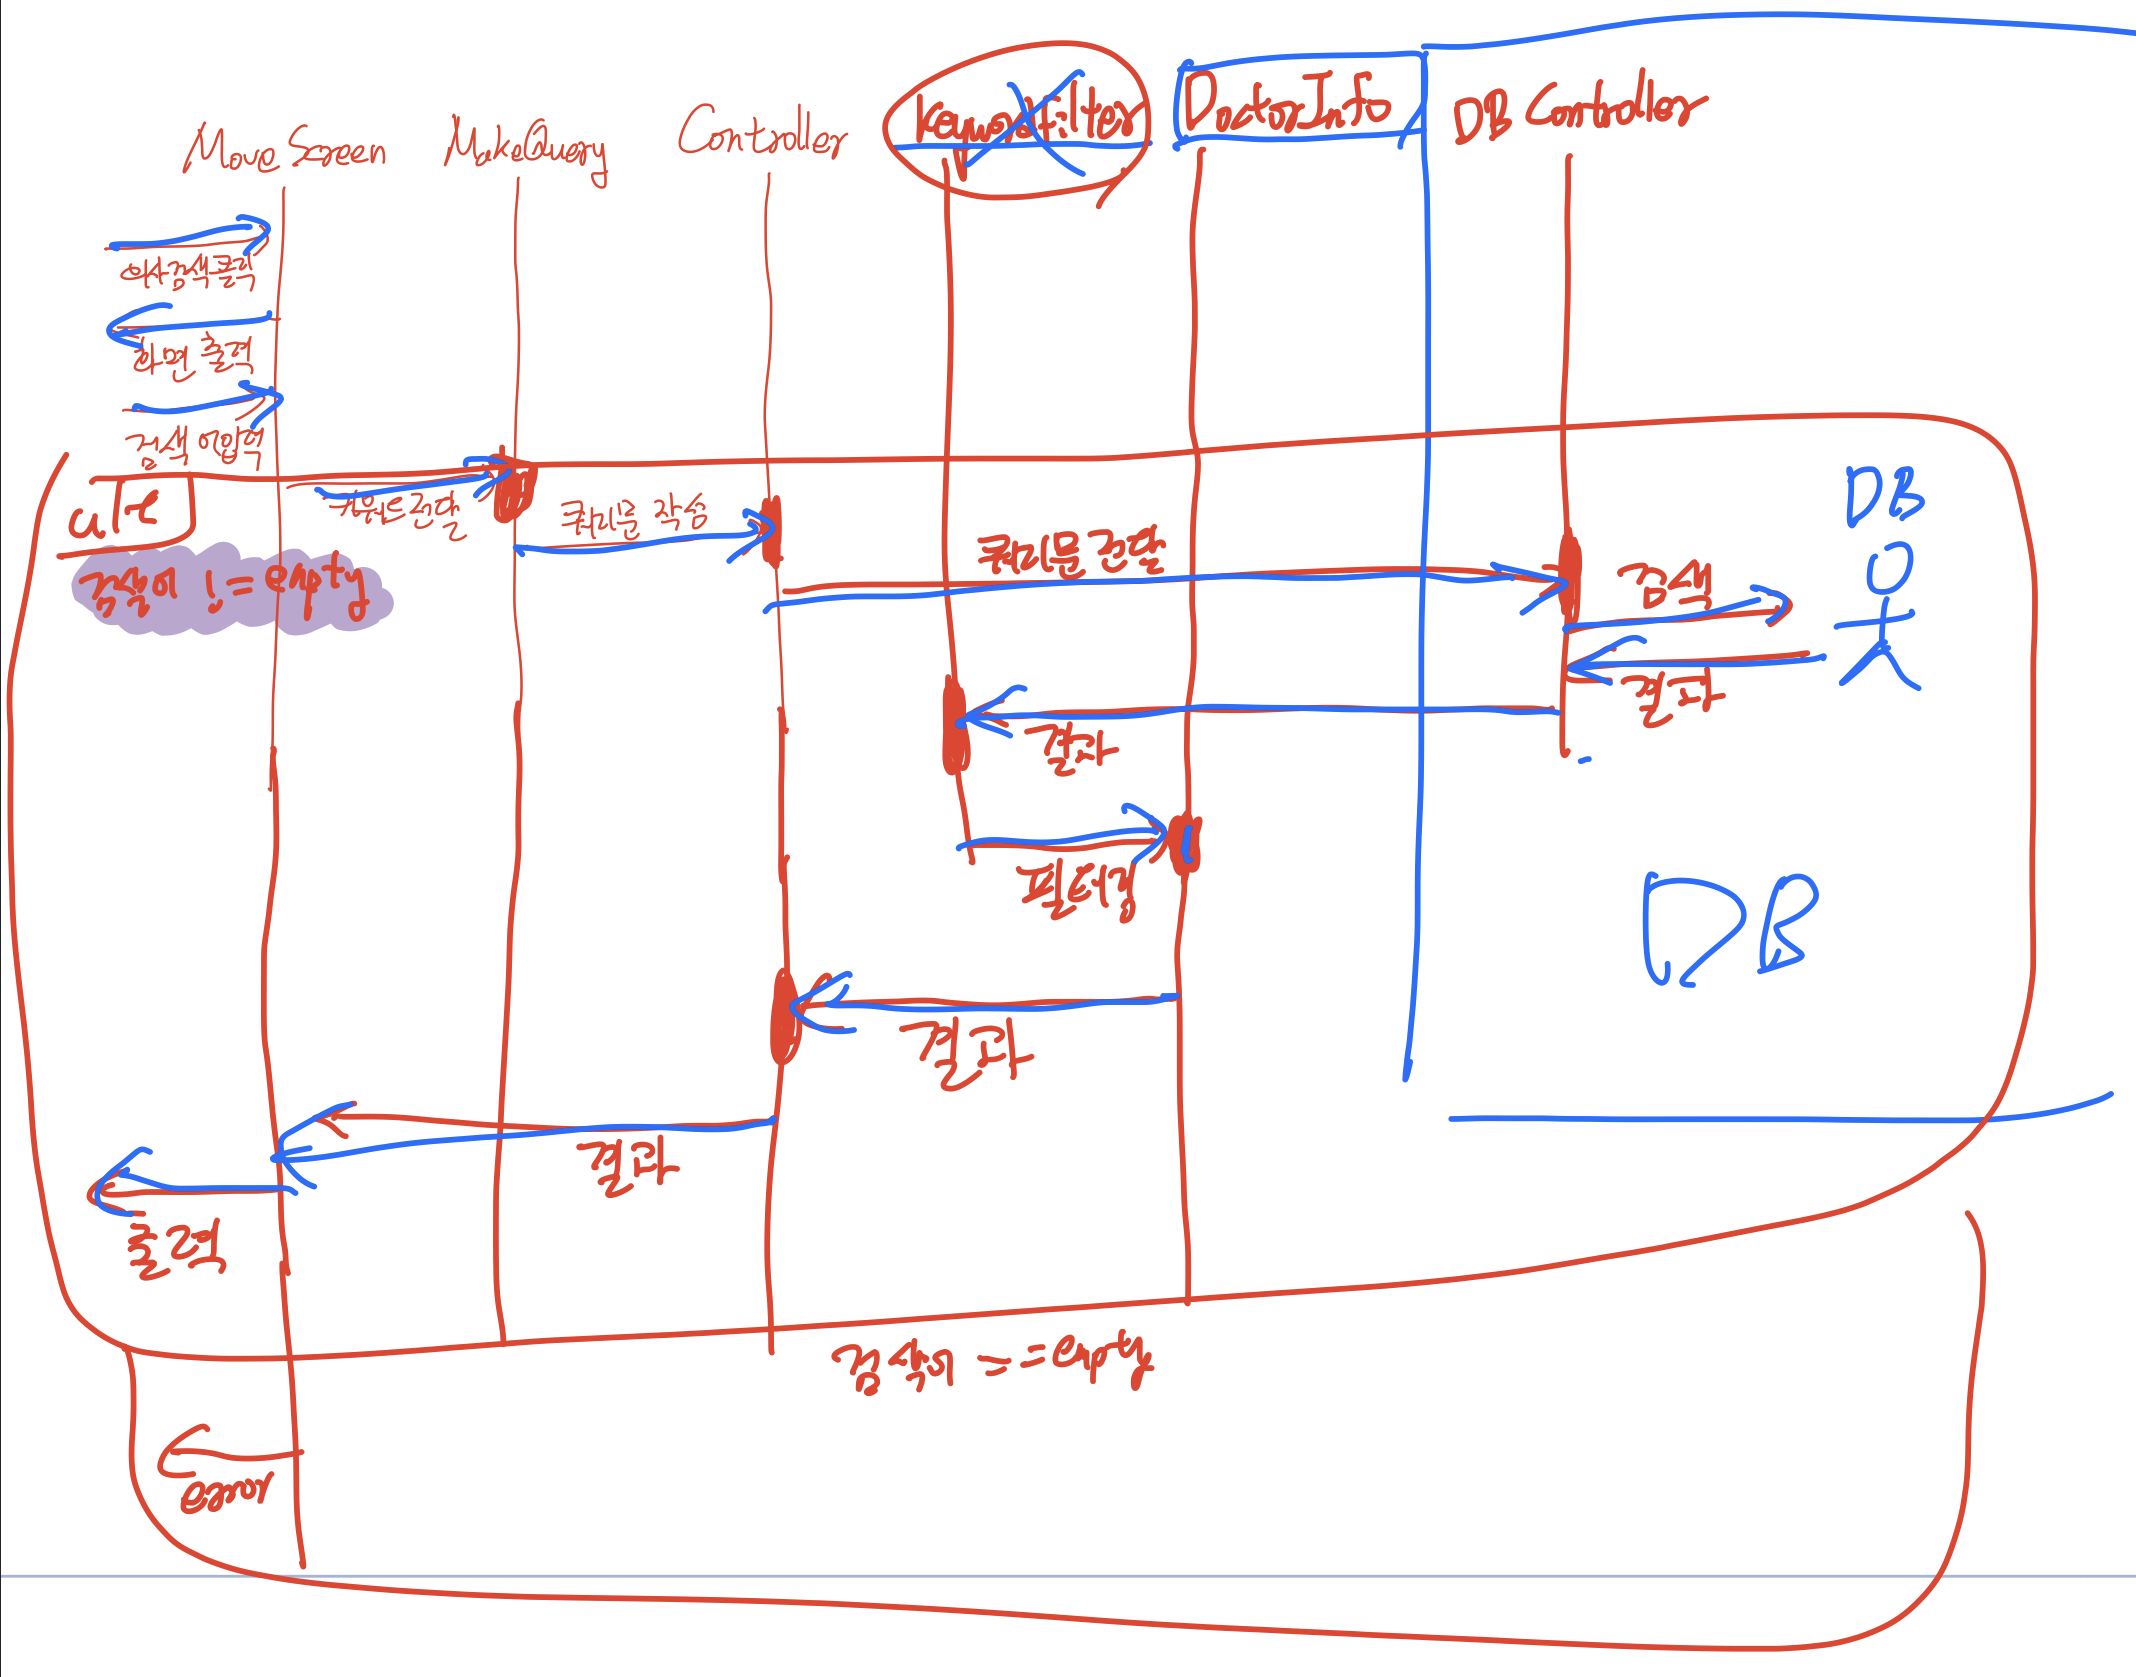 Move Screen
MakeQuery
Controller
keywordFilter
DoctorInfo
DB Controller
의사검색클릭
화면 출력
검색어입력
alt
키워드전달
쿼리문 작성
검색어 != empty
쿼리문 전달
검색
DB
결과
결과
필터링
DB
결과
결과
출력
검색어 == empty
error